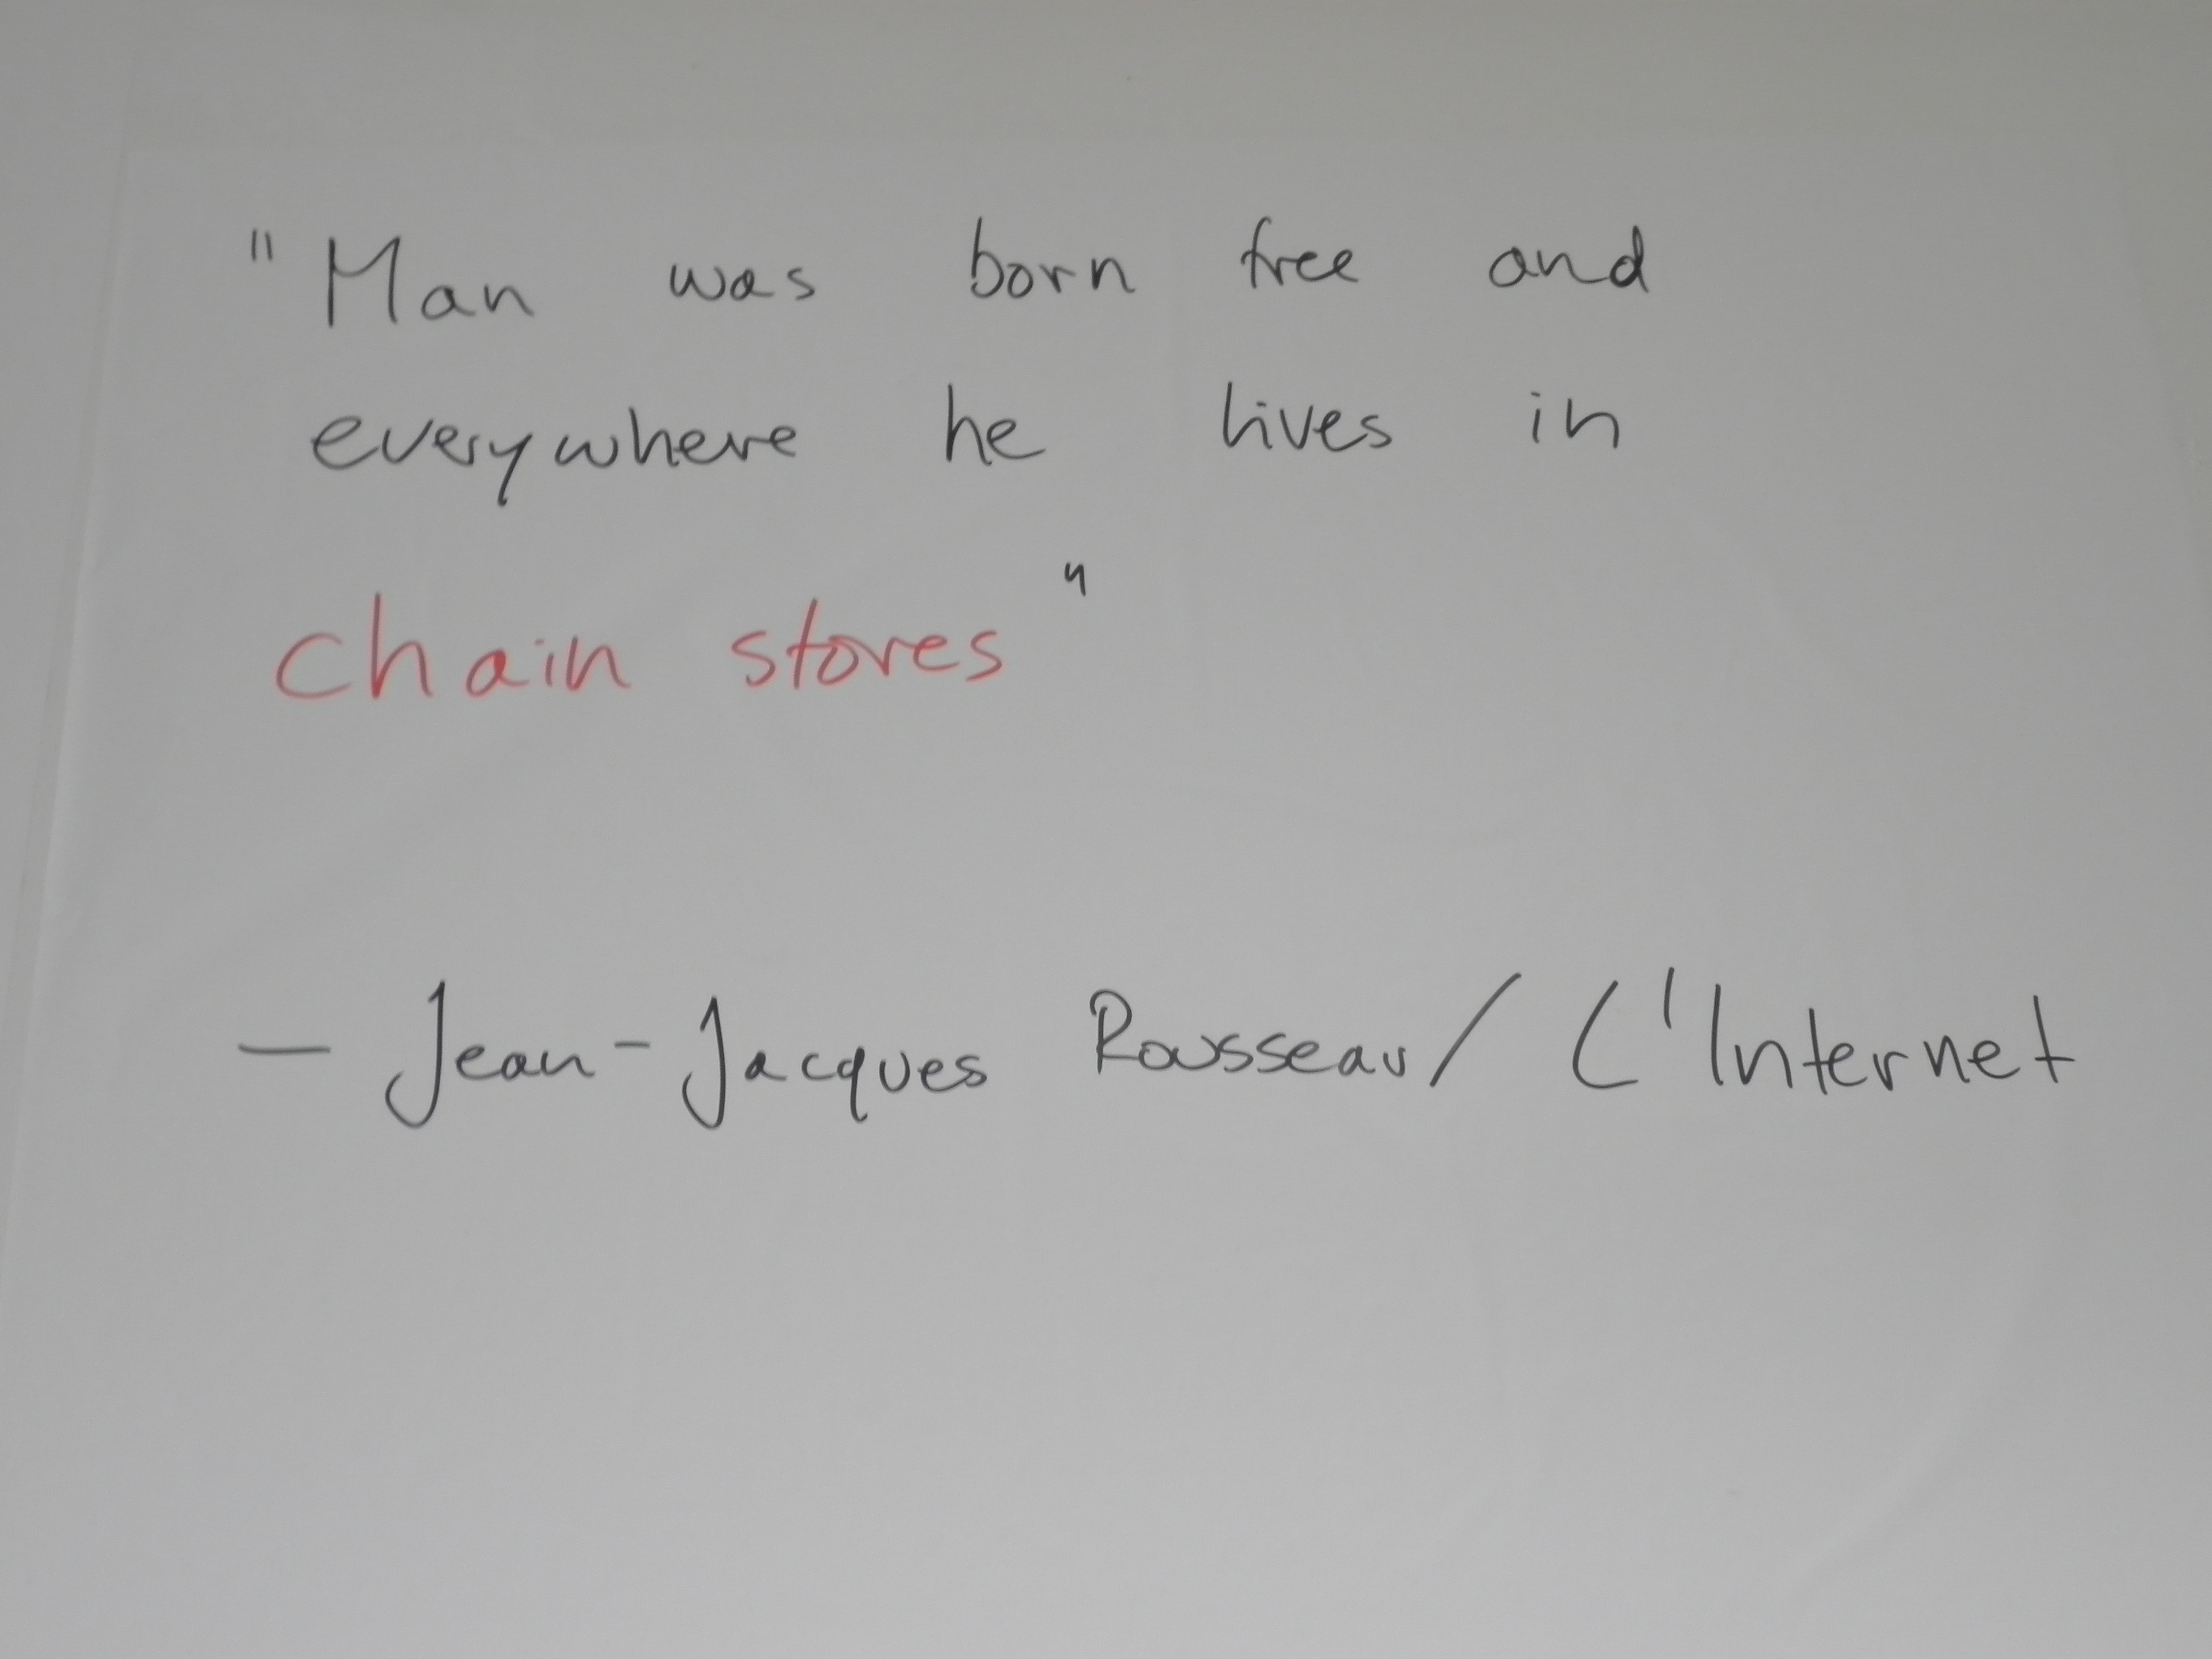 "Man was born free and
everywhere he lives in
chain stores"
— Jean-Jacques Rousseau / L'Internet